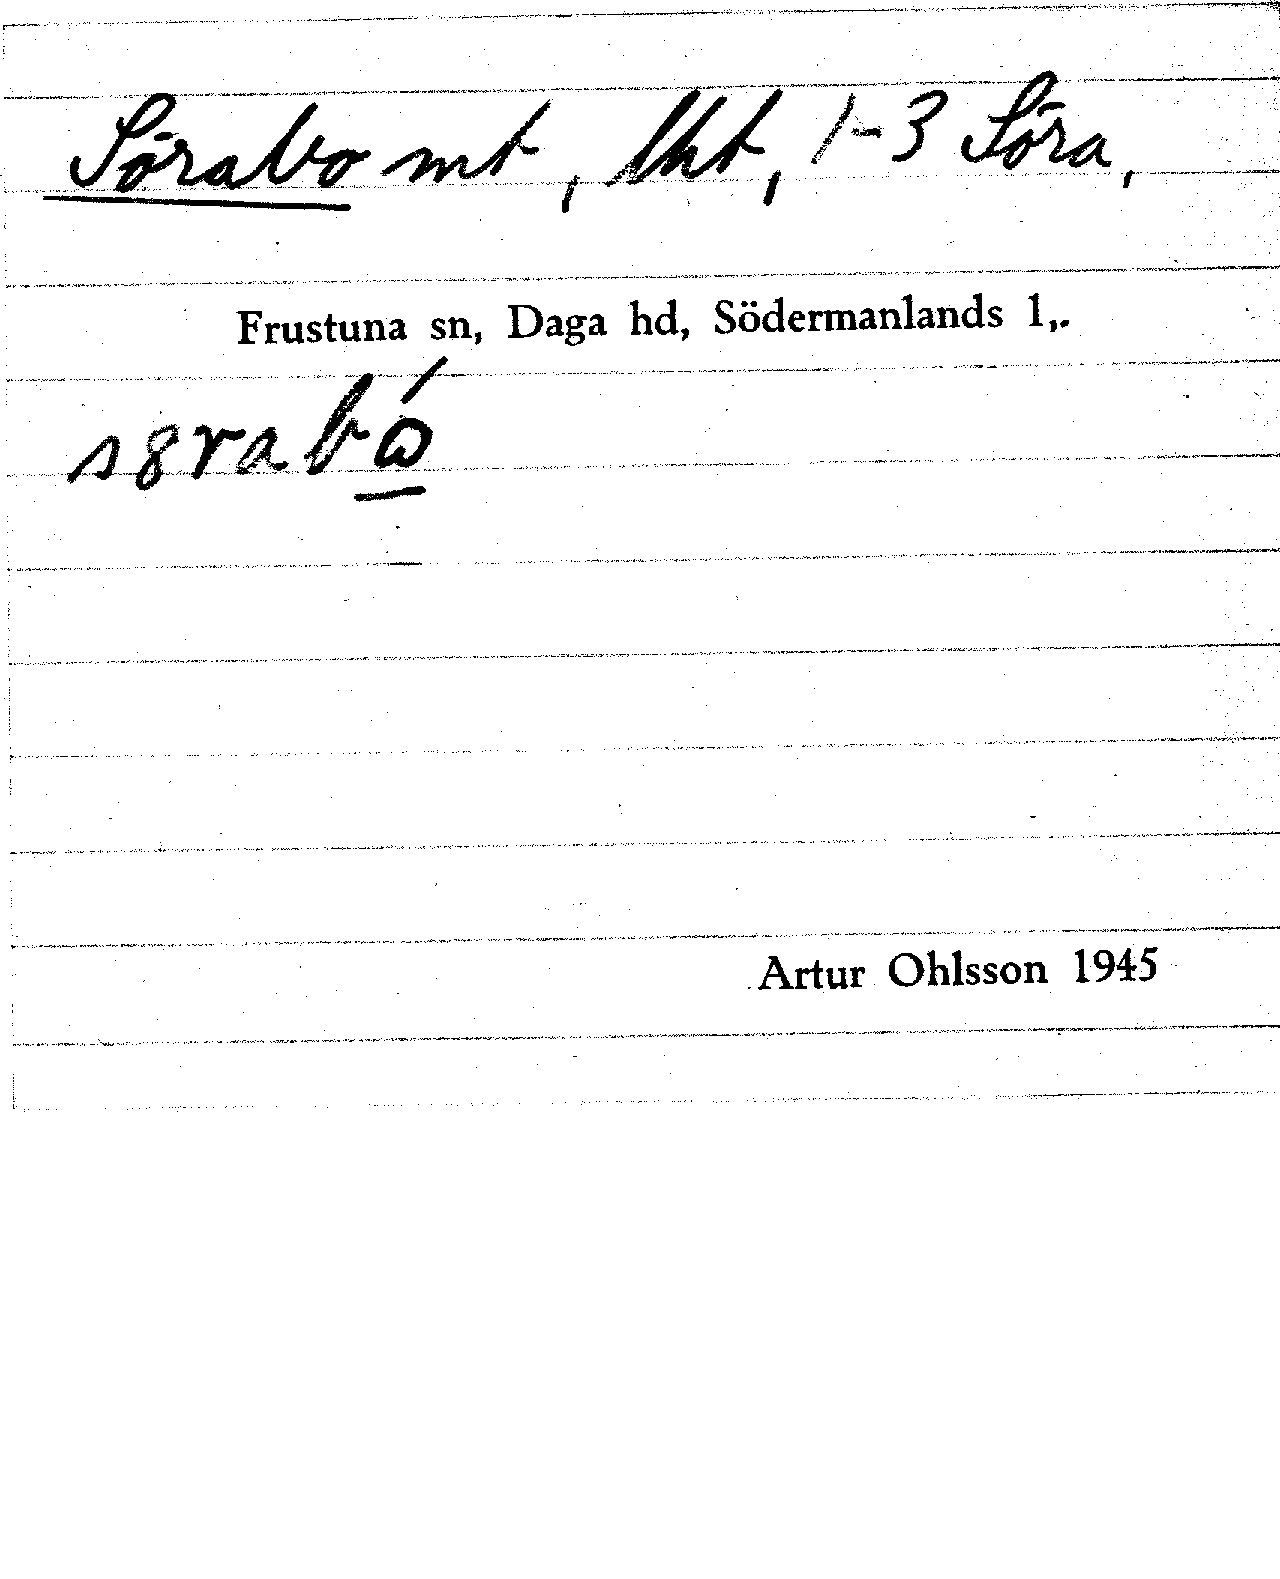 Sörabo mt, lht, 1-3 Söra,
Frustuna sn, Daga hd, Södermanlands l,.
s8rabώ
Artur Ohlsson 1945